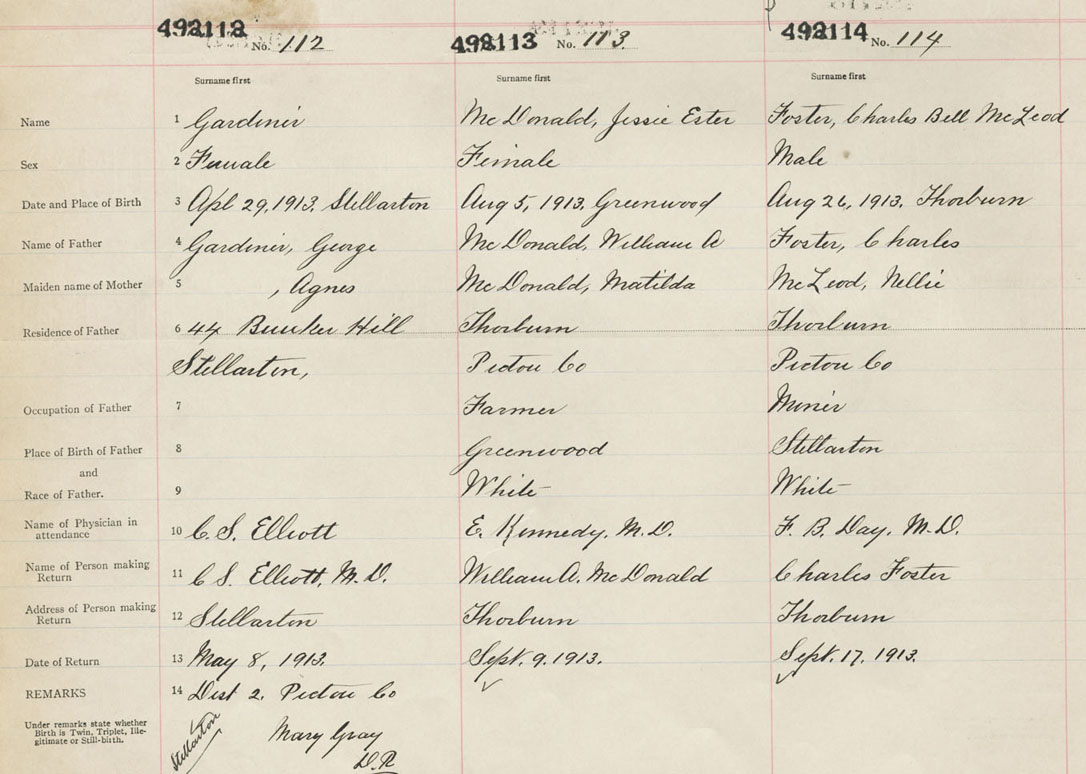 492112 No. 112 492113 No. 113. 492114 No. 114
Surname first Surname first Surname first
Name 1 Gardiner McDonald, Jessie Ester Foster, Charles Bell McLeod
Sex 2 Female Female Male
Date and Place of Birth 3 Apl 29, 1913. Stellarton Aug 5, 1913. Greenwood Aug 26, 1913. Thorburn
Name of Father 4 Gardiner, George McDonald, William A Foster, Charles
Maiden name of Mother 5 , Agnes McDonald, Matilda McLeod, Nellie
Residence of Father 6 44 Bunker Hill Thorburn Thorburn
Stellarton, Pictou Co Pictou Co
Occupation of Father 7 Farmer Miner
Place of Birth of Father 8 Greenwood Stellarton
and
Race of Father. 9 White White
Name of Physician in
attendance 10 C. S. Elliott E. Kennedy, M.D. F. B. Day, M.D.
Name of Person making
Return 11 C S. Elliott, M.D. William A. McDonald Charles Foster
Address of Person making
Return 12 Stellarton Thorburn Thorburn
Date of Return 13 May 8, 1913. Sept. 9. 1913. Sept. 17. 1913.
REMARKS 14 Dist 2. Pictou Co
Under remarks state whether
Birth is Twin, Triplet, Ille-
gitimate or Still-birth.
Stellarton Mary Gray
D.R